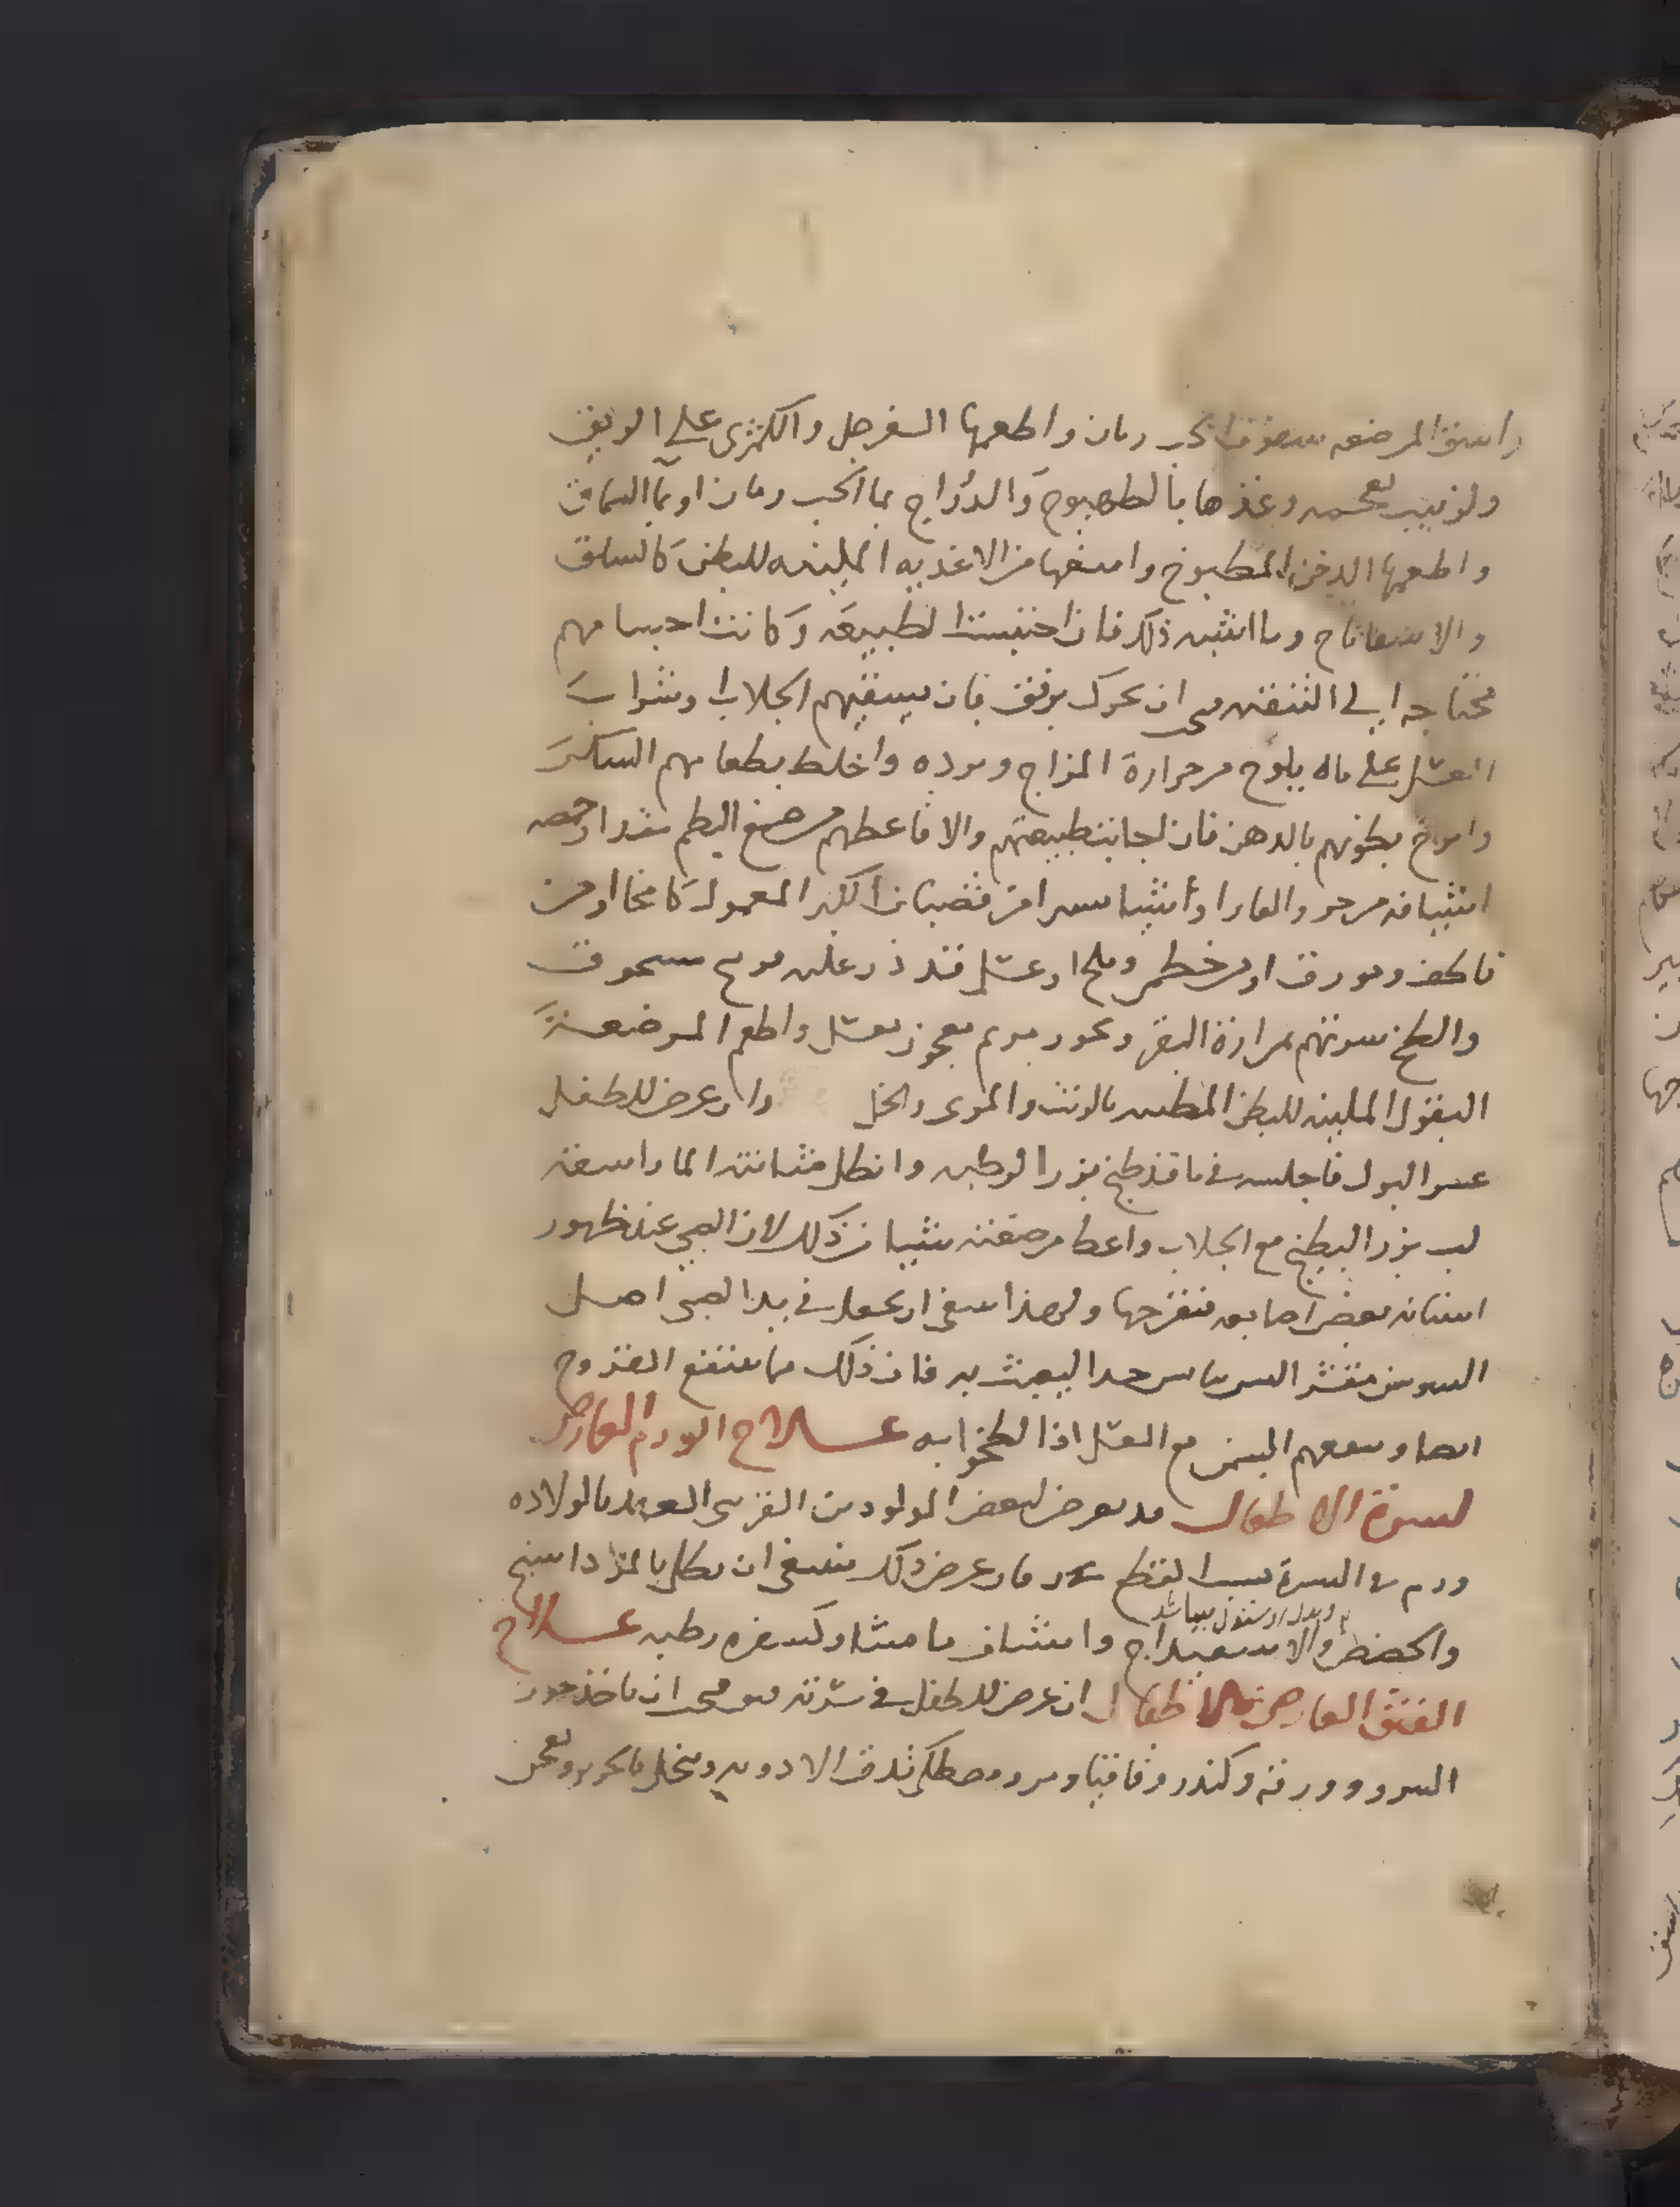 واسق المرضعه سفوف الحب رمان واطعمها السفرجل والكمثرى على الريق
والزبيب بعجمه وغذها بالطيهوج والدراج بماء الحب رمان او بماء السماق
واطعمها الدخن المطبوخ وامنعها من الاغذيه الملينه للبطن كالسلق
والاسفاناخ وما اشبه ذلك فان احتبست الطبيعه وكانت اجسامهم
محتاجه الى التنقيه فيجب ان تحرك برفق بان تسقيهم الجلاب وشراب
العسل على ما يلوح من حرارة المزاج وبرده واخلط بطعامهم السكر
وامرخ بطونهم بالدهن فان اجابت طبيعتهم والا فاعطهم من صمغ البطم مقدار حمصه
او شيافه من خرو الفار او شيا يسيرا من قضبان الكبر المعمول كامخا او من
ناطف وبورق او من خطمى وملح او عسل قد ذر عليه مسحوق
والطخ سرتهم بمرارة البقر وبخور مريم معجون بعسل واطعم المرضعة
البقول الملينه للبطن المطيبه بالزيت والمرى والخل وان عرض للطفل
عسر البول فاجلسه في ما قد طبخ بزر الرطبه وانطل مثانته الما واسقه
لب بزر البطيخ مع الجلاب واعط مرضعته شيا من ذلك لان الصبى عند ظهور
اسنانه يعض اصابعه فتقرحها ولهذا ينبغى ان يجعل في يد الصبى اصل
السوس مقشر ليس يابس جدا ليعبث به فان ذلك مما ينفع القروح
ايضا وينفعهم السمن مع العسل اذا لطخوا به علاج الورم العارض
لسرة الاطفال قد يعرض لبعض المولودين القريبى العهد بالولاده
ورم في السرة بسبب القطع فان عرض ذلك فينبغى ان يطلى بالمرداسنج
والحضض والاسفيداج واشياف ماميثا وكسفره رطبه علاج
الفتق العارض للاطفال ان عرض للطفل في سرته فتق فيجب ان ياخذ جوز
السرو وورقه وكندر وقاقيا ومر ومصطكى تدق الادويه وتنخل بالحرير وتعجن